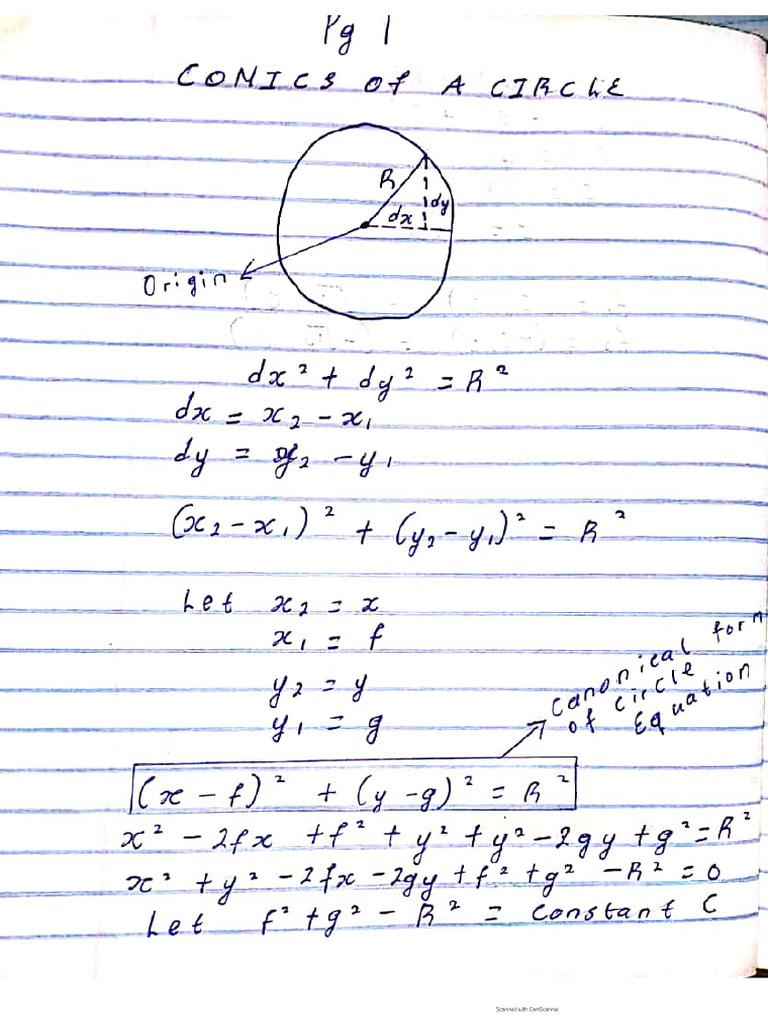 Pg 1
CONICS OF A CIRCLE
R
dy
dx
Origin
dx² + dy² = R²
dx = x₂ - x₁
dy = y₂ - y₁
(x₂ - x₁)² + (y₂ - y₁)² = R²
Let x₂ = x
x₁ = f
y₂ = y
y₁ = g
Canonical form
of circle
Equation
(x - f)² + (y - g)² = R²
x² - 2fx + f² + y² + y² - 2gy + g² = R²
x² + y² - 2fx - 2gy + f² + g² - R² = 0
Let f² + g² - R² = Constant C
Scanned with CamScanner